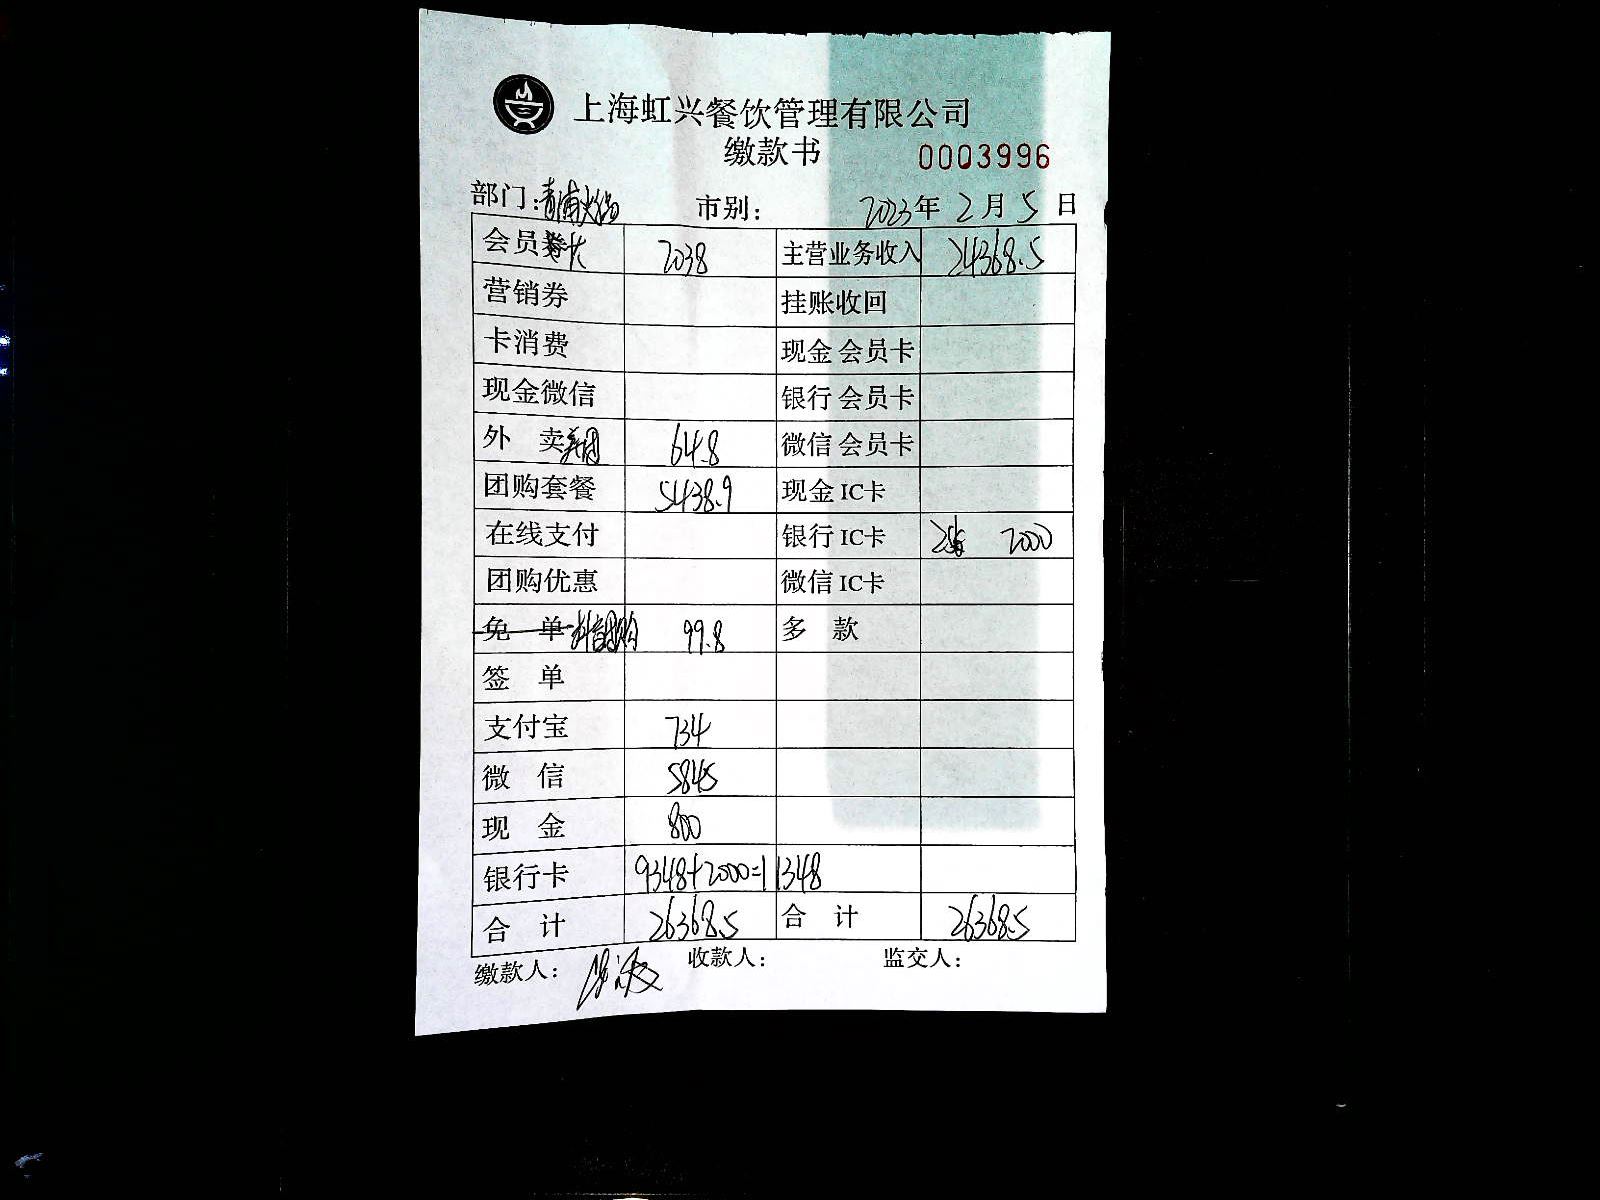 上海虹兴餐饮管理有限公司
缴款书 0003996
部门:青浦 市别: 2023年 2月 5日
会员卡 2038 主营业务收入 24368.5
营销券 挂账收回
卡消费 现金 会员卡
现金微信 银行 会员卡
外 卖美团 64.8 微信 会员卡
团购套餐 5438.9 现金 IC卡
在线支付 银行 IC卡 2000
团购优惠 微信 IC卡
免 单 抖音团购 99.8 多 款
签 单
支付宝 734
微 信 5845
现 金 800
银行卡 9348+2000=11348
合 计 26368.5 合 计 26368.5
缴款人: 收款人: 监交人: